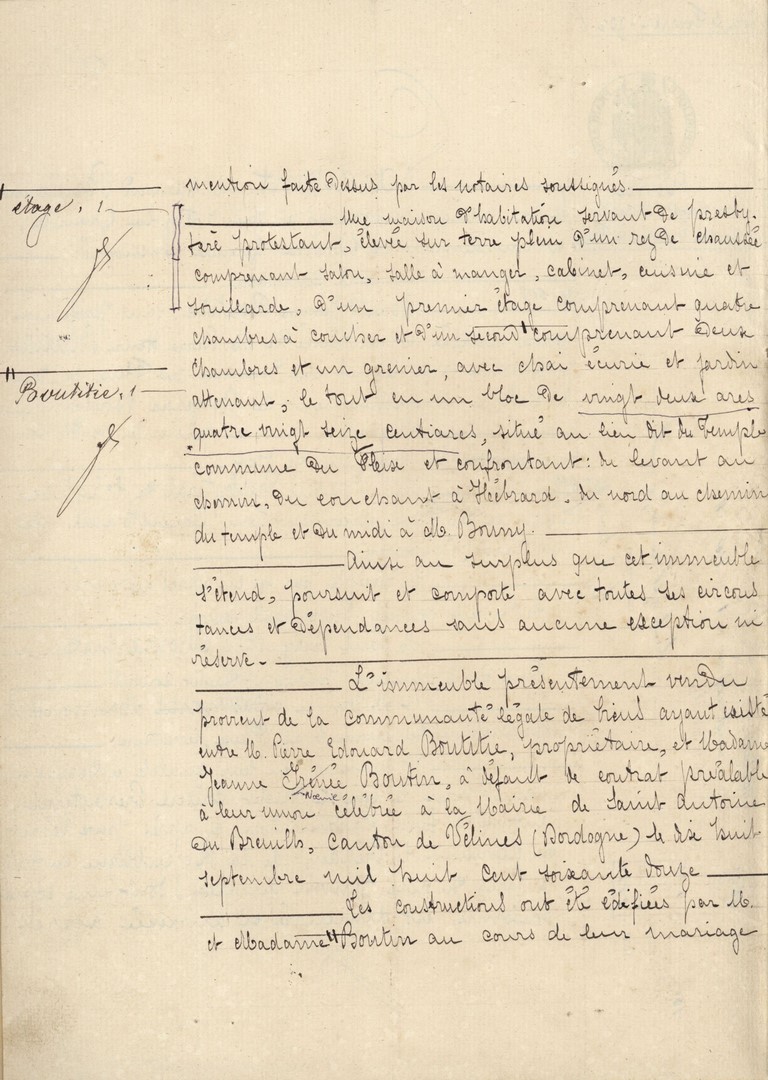 mention faite dessus par les notaires soussignés.
étage. 1
Une maison d'habitation servant de presby-
tère protestant, élevée sur terre plein d'un rez de chaussée
comprenant salon, salle à manger, cabinet, cuisine et
souillarde, d'un premier étage comprenant quatre
chambres à coucher et d'un second " comprenant deux
chambres et un grenier, avec chai écurie et jardin
Boutitie. 1
attenant, le tout en un bloc de vingt deux ares
quatre vingt seize centiares, situé au lieu dit du Temple
commune du Fleix et confrontant: du levant au
chemin, du couchant à Hébrard, du nord au chemin
du temple et du midi à M. Bonny.
Ainsi au surplus que cet immeuble
s'étend, poursuit et comporte avec toutes ses circons
tances et dépendances sans aucune exception ni
réserve.
L'immeuble présentement vendu
provient de la communauté légale de biens ayant existé
entre M. Pierre Edouard Boutitie, propriétaire, et Madame
Jeanne Irénée Boutin, à défaut de contrat préalable
Noémie
à leur union célébrée à la Mairie de Saint Antoine
du Breuilh, canton de Vélines (Dordogne) le dix huit
septembre mil huit cent soixante douze
Les constructions ont été édifiées par M.
et Madame " Boutin au cours de leur mariage